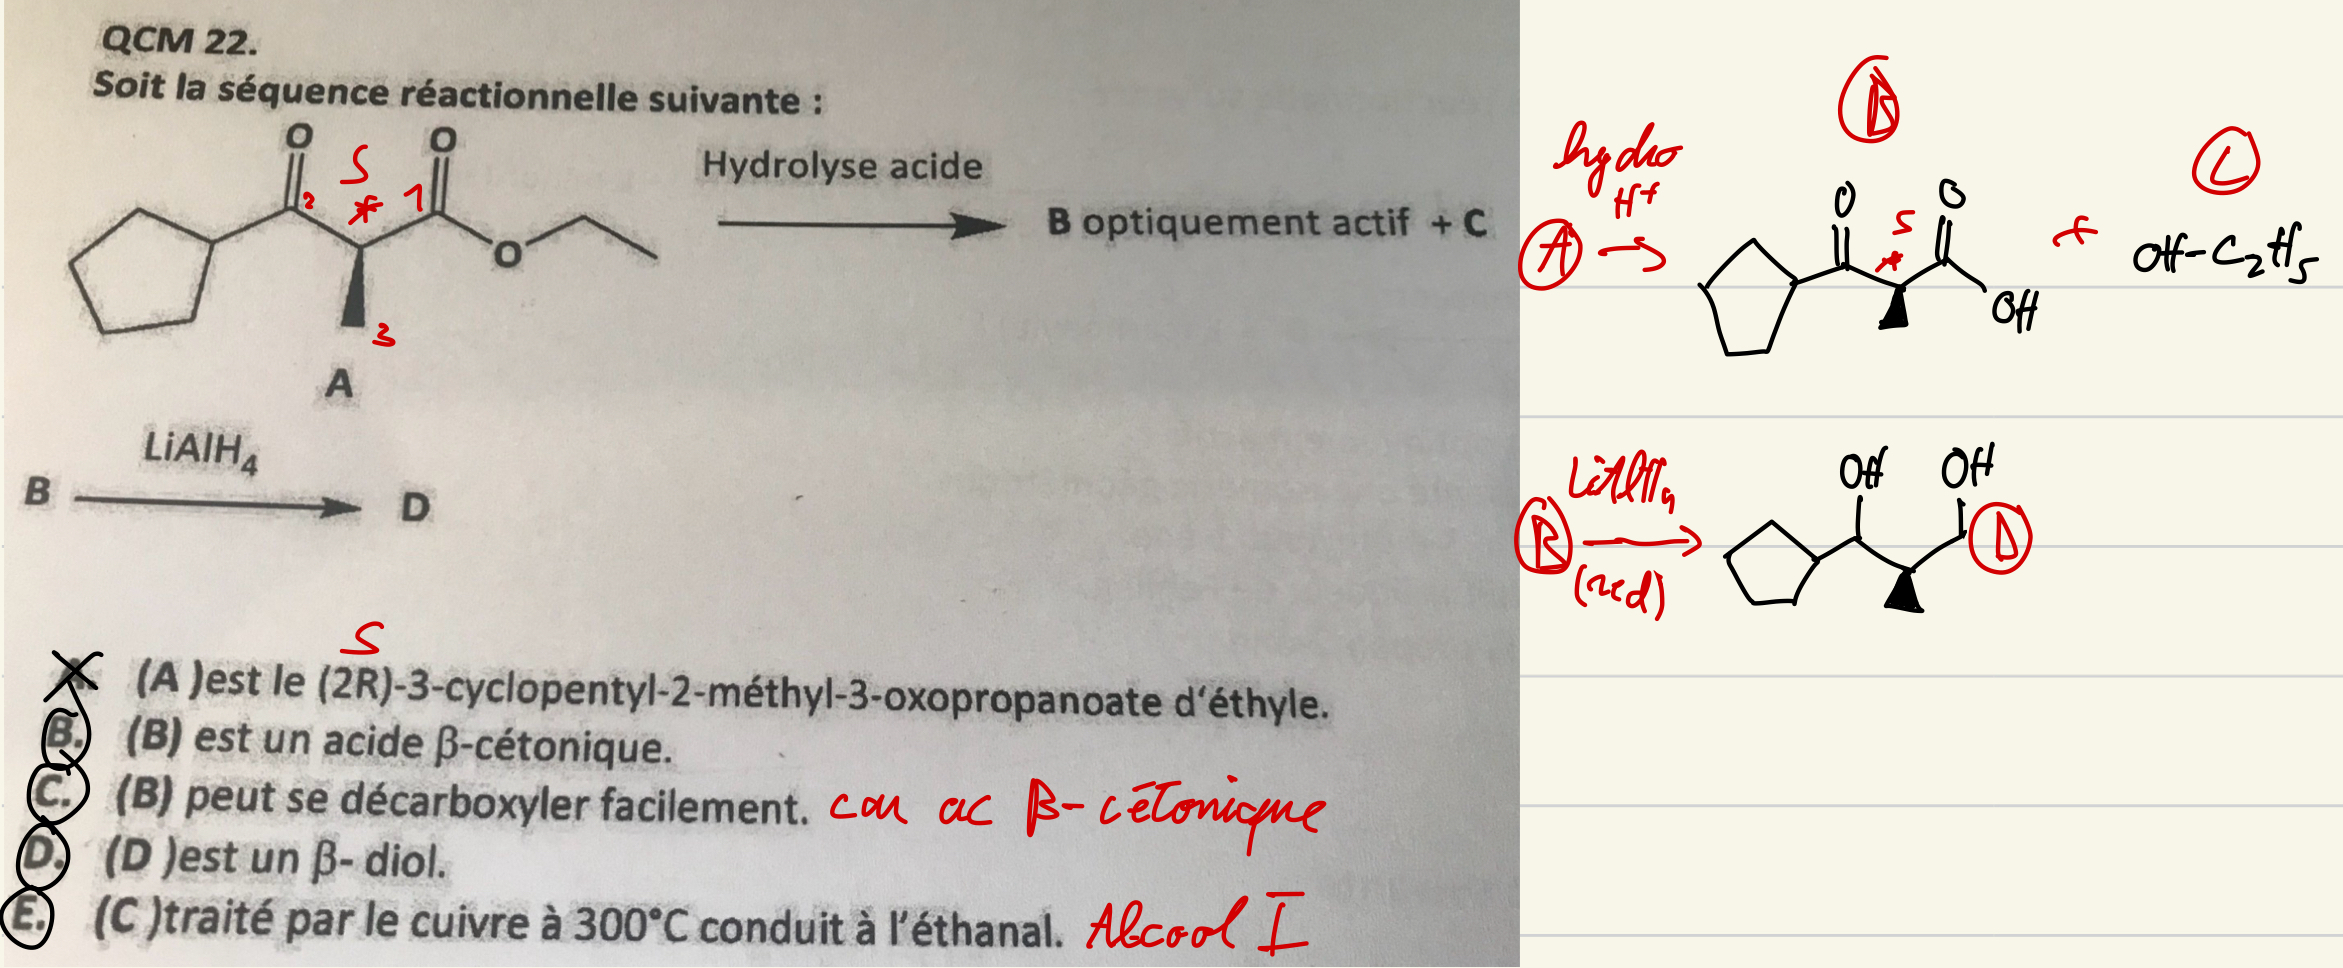 QCM 22.
Soit la séquence réactionnelle suivante :
O O
S
2 * 1
O
3
A
Hydrolyse acide
B optiquement actif + C
LiAlH4
B D
S
A. (A )est le (2R)-3-cyclopentyl-2-méthyl-3-oxopropanoate d'éthyle.
B. (B) est un acide β-cétonique.
C. (B) peut se décarboxyler facilement. car ac β-cétonique
D. (D )est un β- diol.
E. (C )traité par le cuivre à 300°C conduit à l'éthanal. Alcool I
B
hydro
H+
C
A →
O O
S
*
OH
+
OH-C2H5
LiAlH4
B → (red)
OH OH
D